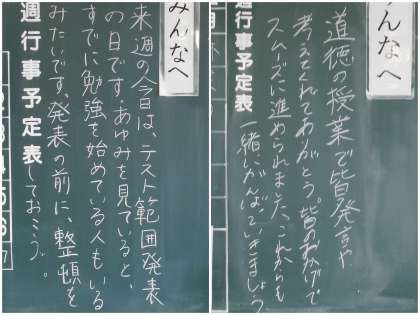 みんなへ
来週の今日は、テスト範囲発表
の日です。あゆみを見ていると、
すでに勉強を始めている人もいる
みたいです。発表の前に、整頓を
しておこう。
週行事予定表
2
3
4
5
6
7
んなへ
道徳の授業で皆発言や
考えてくれてありがとう。皆のおかげで
スムーズに進められました。これからも
一緒にがんばっていきましょう。
週行事予定表